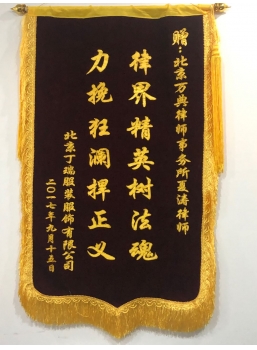 赠：北京万典律师事务所夏涛律师
律界精英树法魂
力挽狂澜捍正义
北京丁瑞服装服饰有限公司
二〇一七年九月十五日